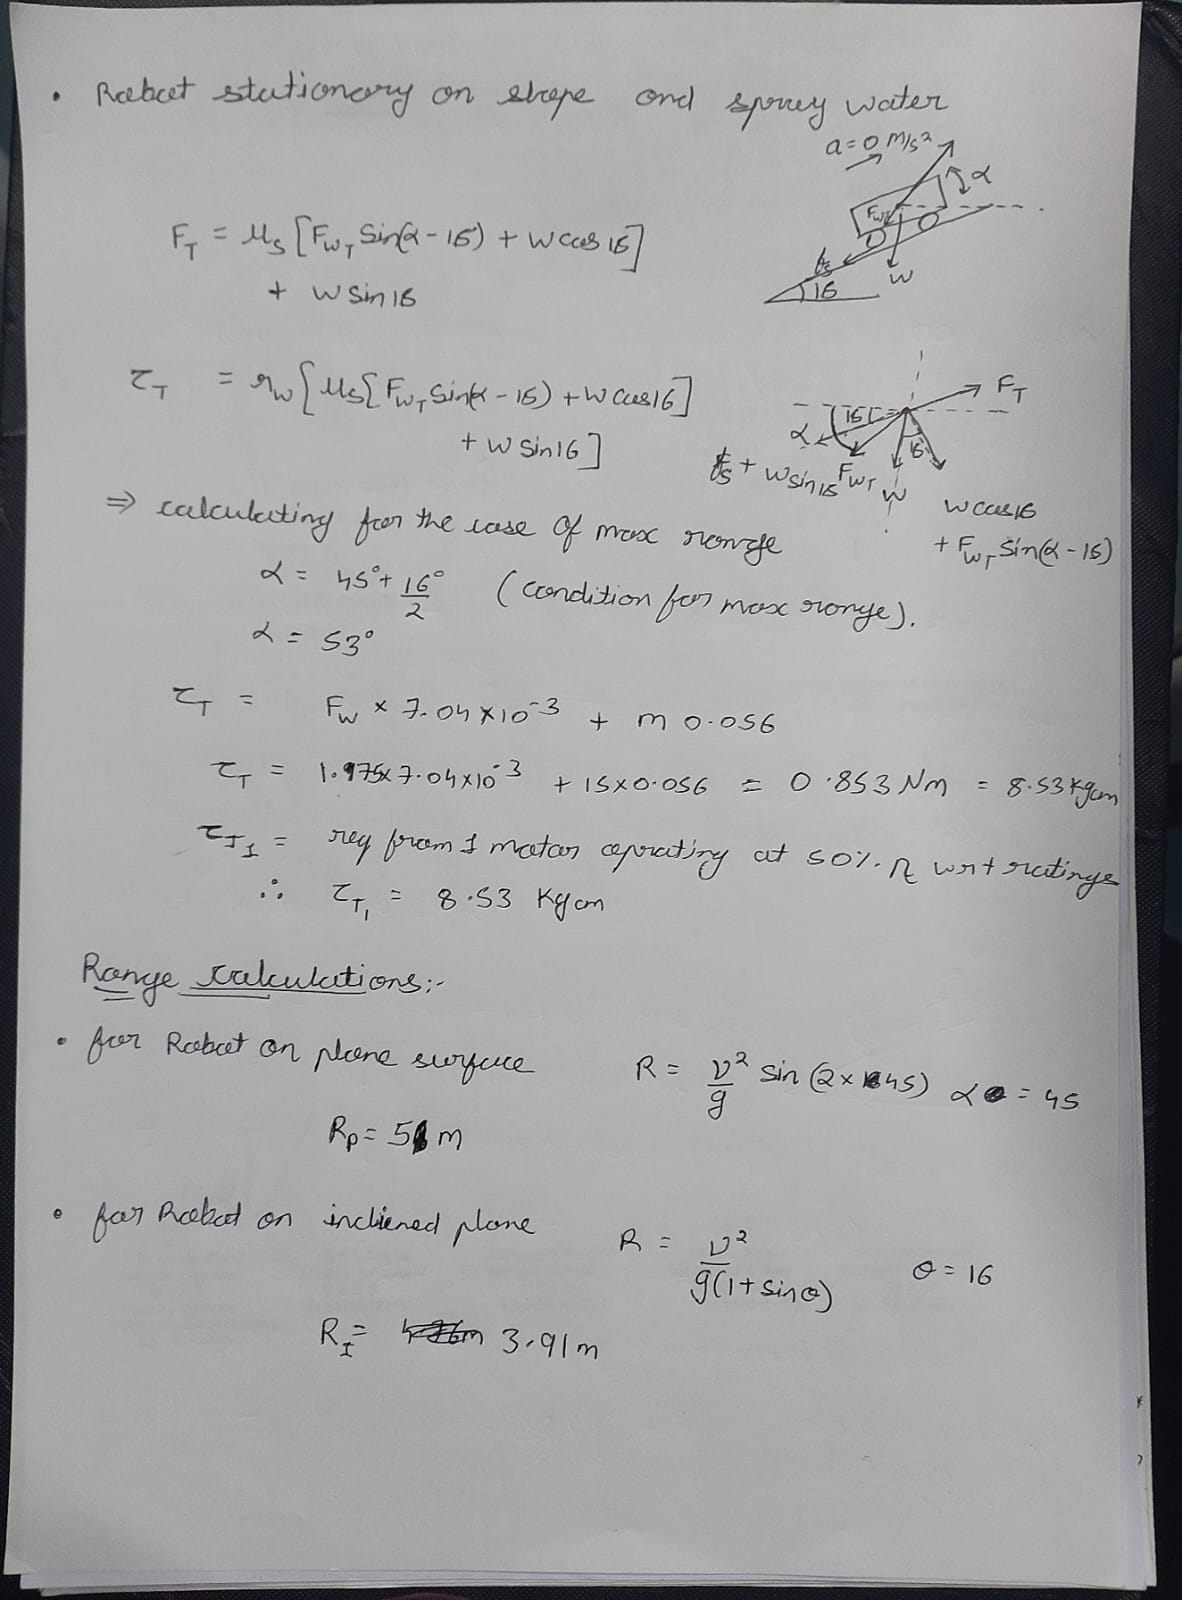 • Robot stationary on slope and spray water
a = 0 m/s²
α
F_T = μ_s [F_WT Sin(α - 16) + W cos 16]
+ W sin 16
F_WT
f_s
W
16
τ_T = r_w [μ_s[F_WT Sin(α - 16) + W cos 16]
+ W sin 16]
F_T
16
α
f_s + W sin 16
F_WT
W
16
W cos 16
+ F_WT Sin(α - 16)
⇒ calculating for the case of max range
α = 45° + 16°/2 (condition for max range).
α = 53°
τ_T = F_W × 7.04 × 10⁻³ + m 0.056
τ_T = 1.975 × 7.04 × 10⁻³ + 15 × 0.056 = 0.853 Nm = 8.53 Kgcm
τ_T1 = req from 1 motor oprating at 50% η wrt ratings
∴ τ_T1 = 8.53 Kgcm
Range calculations:-
• for Robot on plane surface
R = v²/g sin (2 × 45) α = 45
R_P = 5 m
• for Robot on incliened plane
R = v²/g(1 + sin θ) θ = 16
R_I = 3.91 m